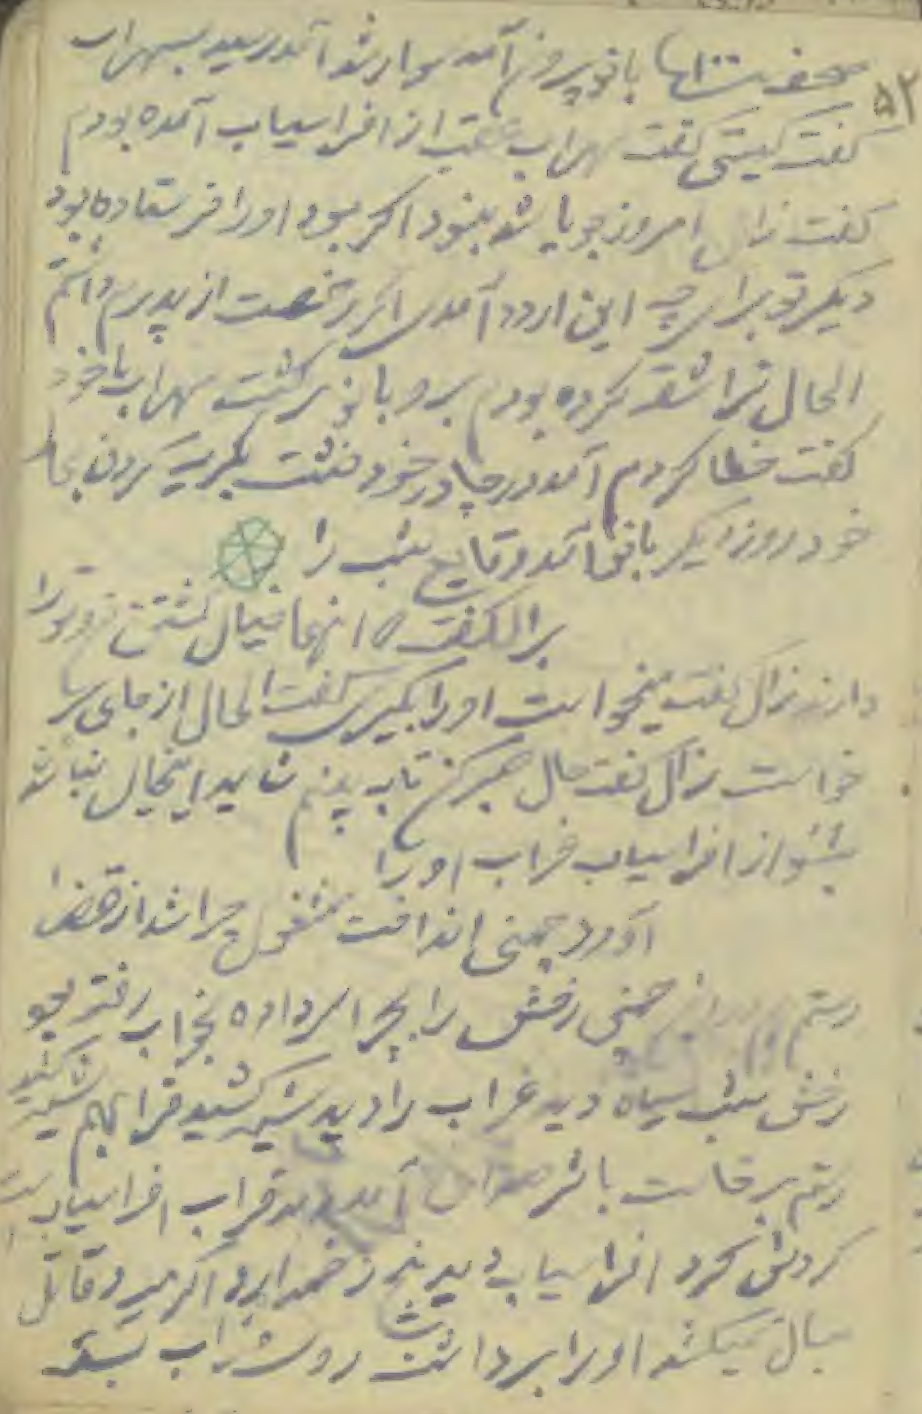 ۵۲
بانو بیرون آمد سوار شد آمد رسید بسهراب
گفت کیستی گفت سهراب عقب از افراسیاب آمده بودم
گفت زال امروز جویا شد بنود اگر بود او را فرستاده بود
دیگر تو برای چه این اردد آمدی اگر رخصت از پدرم داشتم
الحال ترا شقه کرده بودم برو بانو برگشت سهراب با خود
گفت خطا کردم آمد در چادر خود نشت بگریه کردن بحال
خود روز دیگر بانو آمد وقایع شب را
بزال گفت اینها خیال کشتن تو را
دارند زال گفت میخواست او را بگیری گفت الحال از جای
خواست زال گفت حال صبر کن تا به بینم شاید اینخیال نباشد
بشنو از افراسیاب غراب او را
آورد چمنی انداخت مشغول چرا شد از قضا
رستم چمنی رخش را بچرا سر داده بخواب رفته بود
رخش شب سیاه دید غراب را دید شیهه کشید غراب هم شیهه کشید
رستم برخاست باثر صدای آمد غراب افراسیاب
گردش کرد افراسیاب دید زخمدارد اگر میرد قاتل
میکشد او را برداشت روی غراب بسته